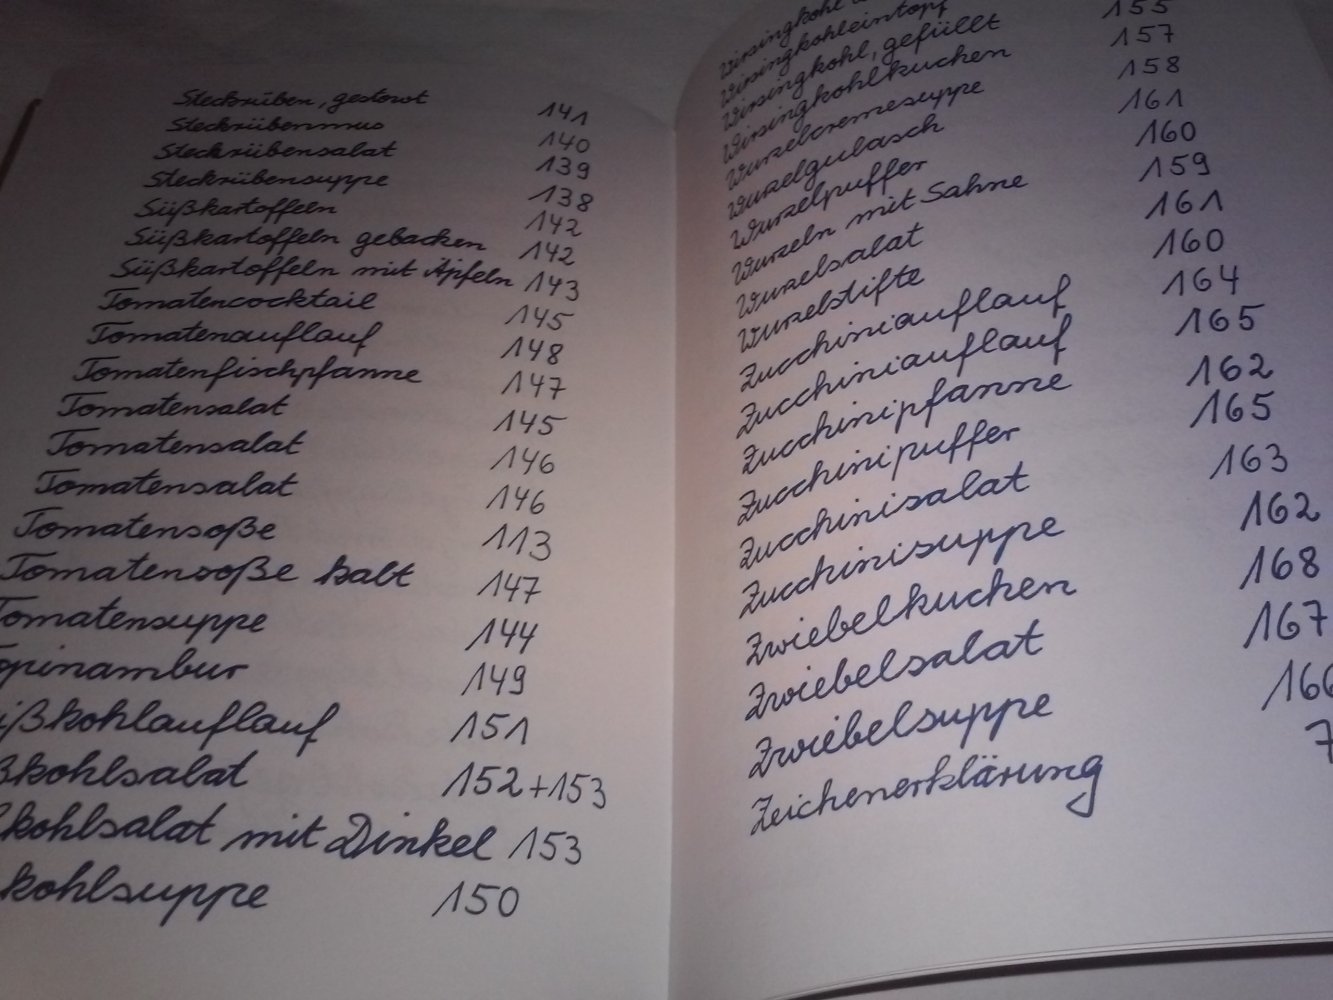 Steckrüben, gestowt 141
Steckrübenmus 140
Steckrübensalat 139
Steckrübensuppe 138
Süßkartoffeln 142
Süßkartoffeln gebacken 142
Süßkartoffeln mit Äpfeln 143
Tomatencocktail 145
Tomatenauflauf 148
Tomatenfischpfanne 147
Tomatensalat 145
Tomatensalat 146
Tomatensalat 146
Tomatensoße 113
Tomatensoße kalt 147
Tomatensuppe 144
opinambur 149
ißkohlauflauf 151
ßkohlsalat 152+153
kohlsalat mit Dinkel 153
kohlsuppe 150
Wirsingkohl
Wirsingkohleintopf
Wirsingkohl, gefüllt 155
Wirsingkohlkuchen 157
Wurzelcremesuppe 158
Wurzelgulasch 161
Wurzelpuffer 160
Wurzeln mit Sahne 159
Wurzelsalat 161
Wurzelstifte 160
Zucchiniauflauf 164
Zucchiniauflauf 165
Zucchinipfanne 162
Zucchinipuffer 165
Zucchinisalat 163
Zucchinisuppe 162
Zwiebelkuchen 168
Zwiebelsalat 167
Zwiebelsuppe 166
Zeichenerklärung 7